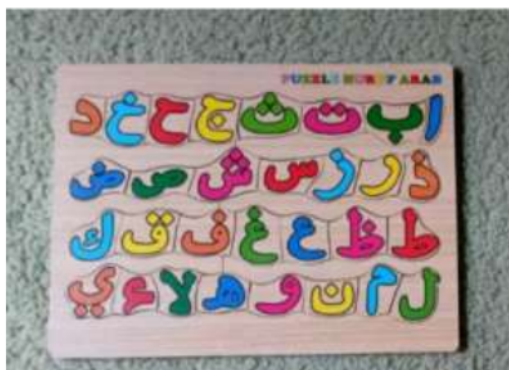 PUZZLE HURUF ARAB
ا ب ت ث ج ح خ د
ذ ر ز س ش ص ض
ط ظ ع غ ف ق ك
ل م ن و ه لا ء ي